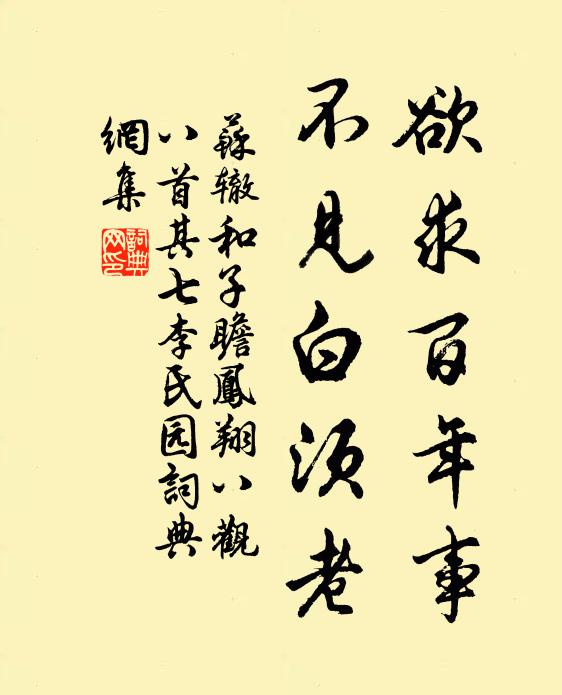 欲求百年事
不見白须老
蘇辙和子瞻鳳翔八觀
八首其七李氏园詞典
網集
詞典
网印